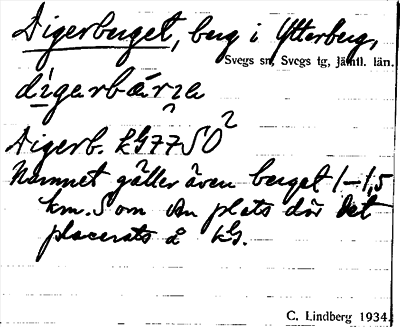 Digerberget, berg i Ytterberg,
Svegs sn, Svegs tg, Jämtl. län.
digarbärıe
Digerb. kG77SO2
Namnet gäller även berget 1–1,5
km. S om den plats där det
placerats å kG.
C. Lindberg 1934.